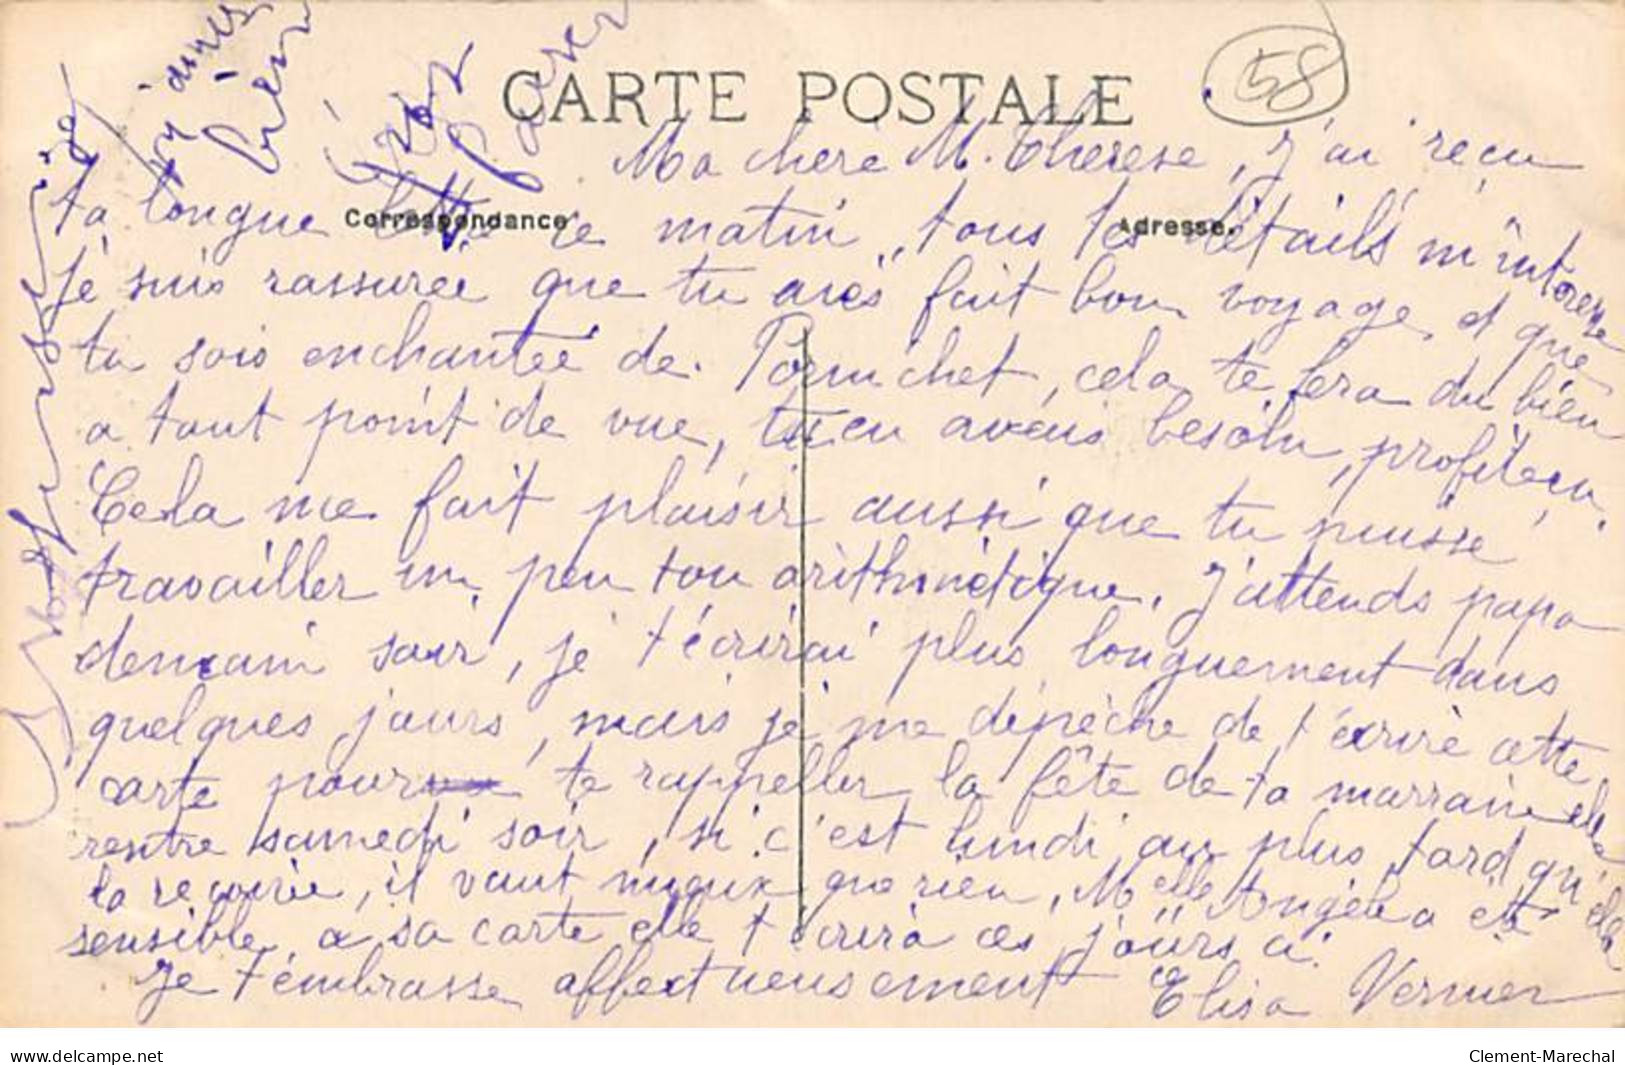 CARTE POSTALE
58
Correspondance
Adresse.
Ma chère M. Thérèse, j'ai reçu
ta longue lettre ce matin, tous tes détails m'intéresse
je suis rassurée que tu aies fait bon voyage et que
tu sois enchantée de Pornichet, cela te fera du bien
a tout point de vue, tu en avais besoin, profite
Cela me fait plaisir aussi que tu puisse
travailler un peu ton arithmétique. J'attends papa
demain soir, je t'écrirai plus longuement dans
quelques jours, mais je me dépèche de t'écrire cette
carte pour te rappeller la fête de ta marraine elle
rentre samedi soir, si c'est lundi au plus tard qu'elle
la reçoive, il vaut mieux que rien, Melle Angéla est
sensible a sa carte elle t'écrira ces jours ci.
Je t'embrasse affectueusement Elisa Vernier
bien
Gros
www.delcampe.net
Clement-Marechal